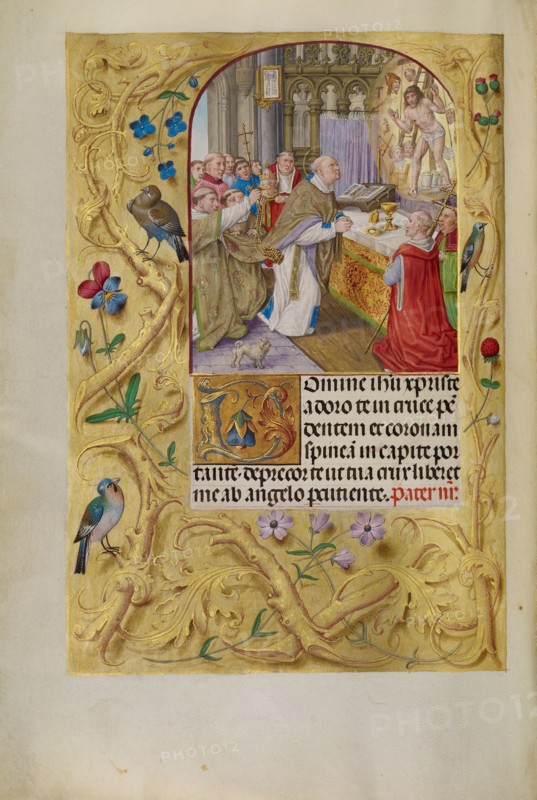 PHOTO12
Domine ihū xpriste
adoro te in cruce pē
dentem et coronam
spineā in capite por
tantē. deprecor te ut tua crux liberet
me ab angelo pcutiente. Pater nr̄:
PHOTO12
PHOTO12